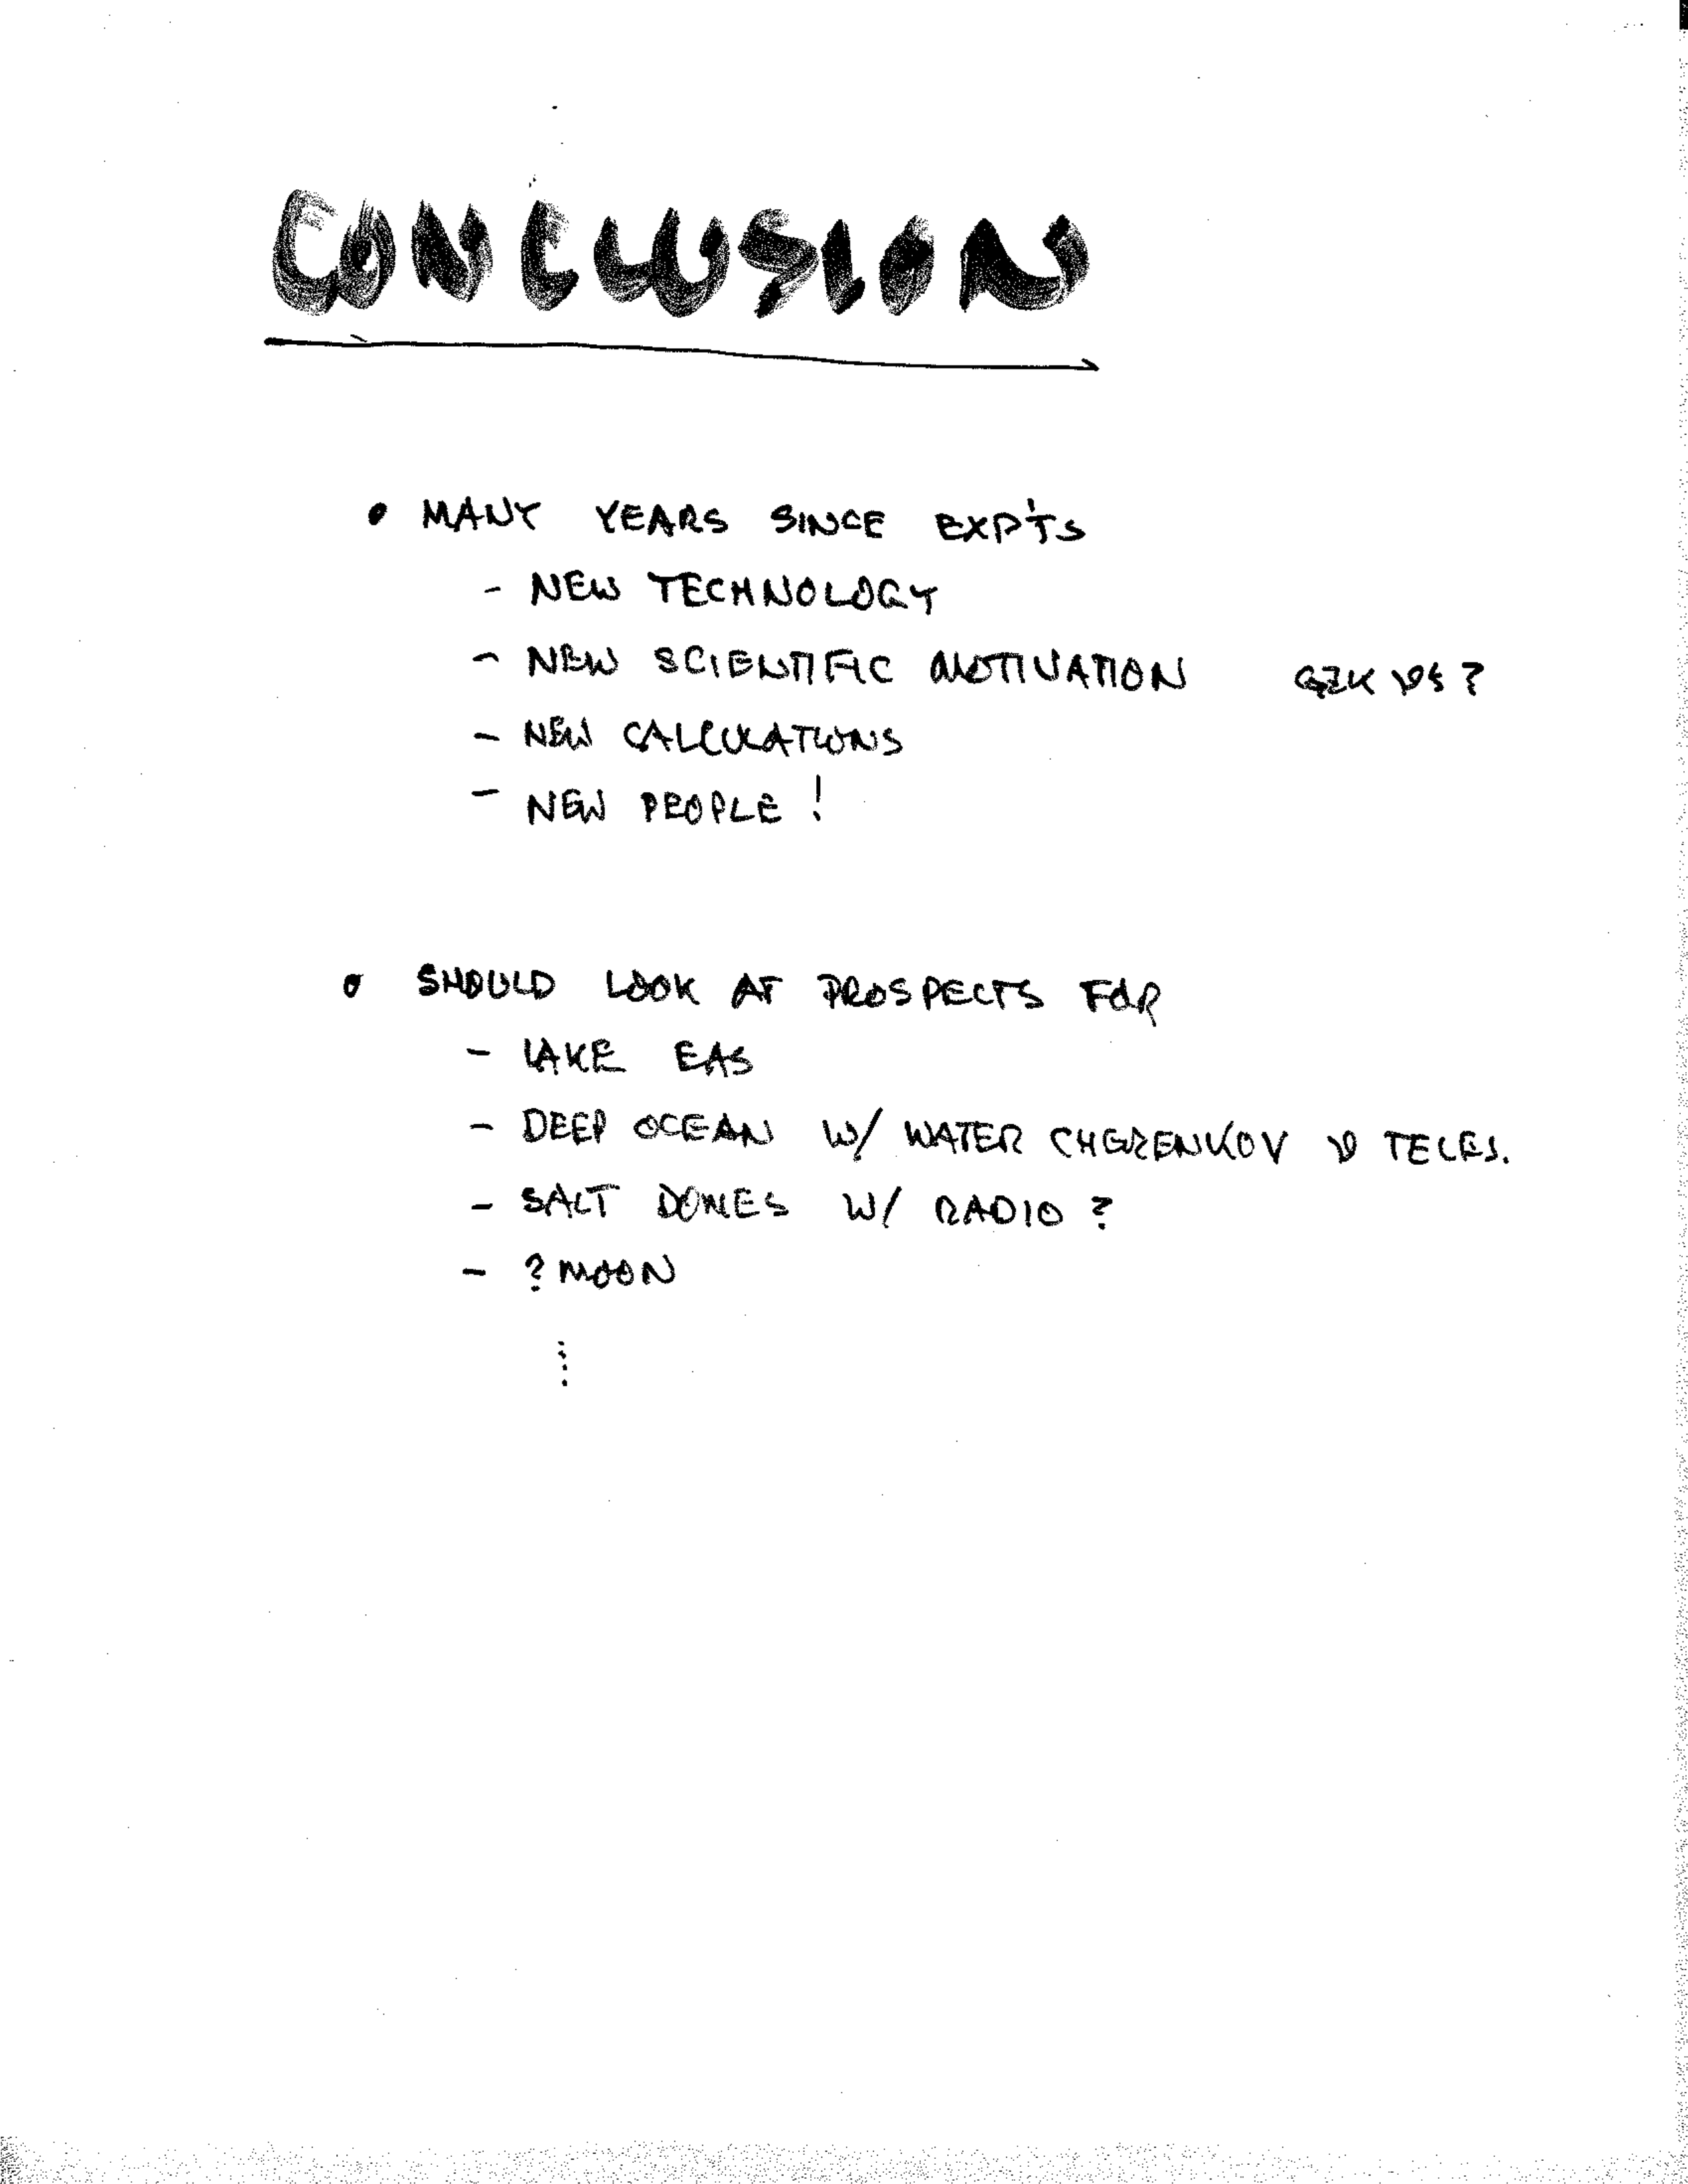 CONCLUSION
• MANY YEARS SINCE EXP'TS
- NEW TECHNOLOGY
- NEW SCIENTIFIC MOTIVATION GZK νs ?
- NEW CALCULATIONS
- NEW PEOPLE !
• SHOULD LOOK AT PROSPECTS FOR
- LAKE EAS
- DEEP OCEAN W/ WATER CHERENKOV ν TELES.
- SALT DOMES W/ RADIO ?
- ? MOON
⋮